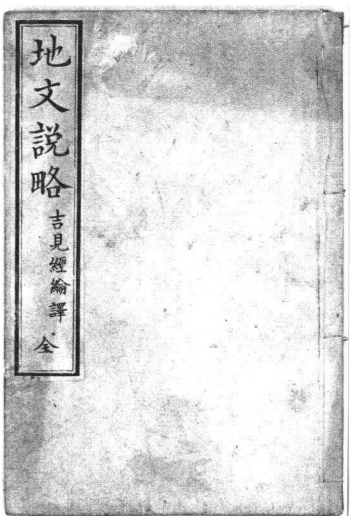 地文説略
吉見經綸譯
全